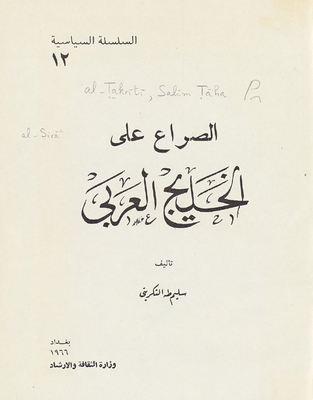 السلسلة السياسية
١٢
al-Takrītī, Salīm Ṭāha
الصراع على
al-Ṣirāʿ
الخليج العربي
تأليف
سليم طه التكريتي
بغداد
١٩٦٦
وزارة الثقافة والارشاد